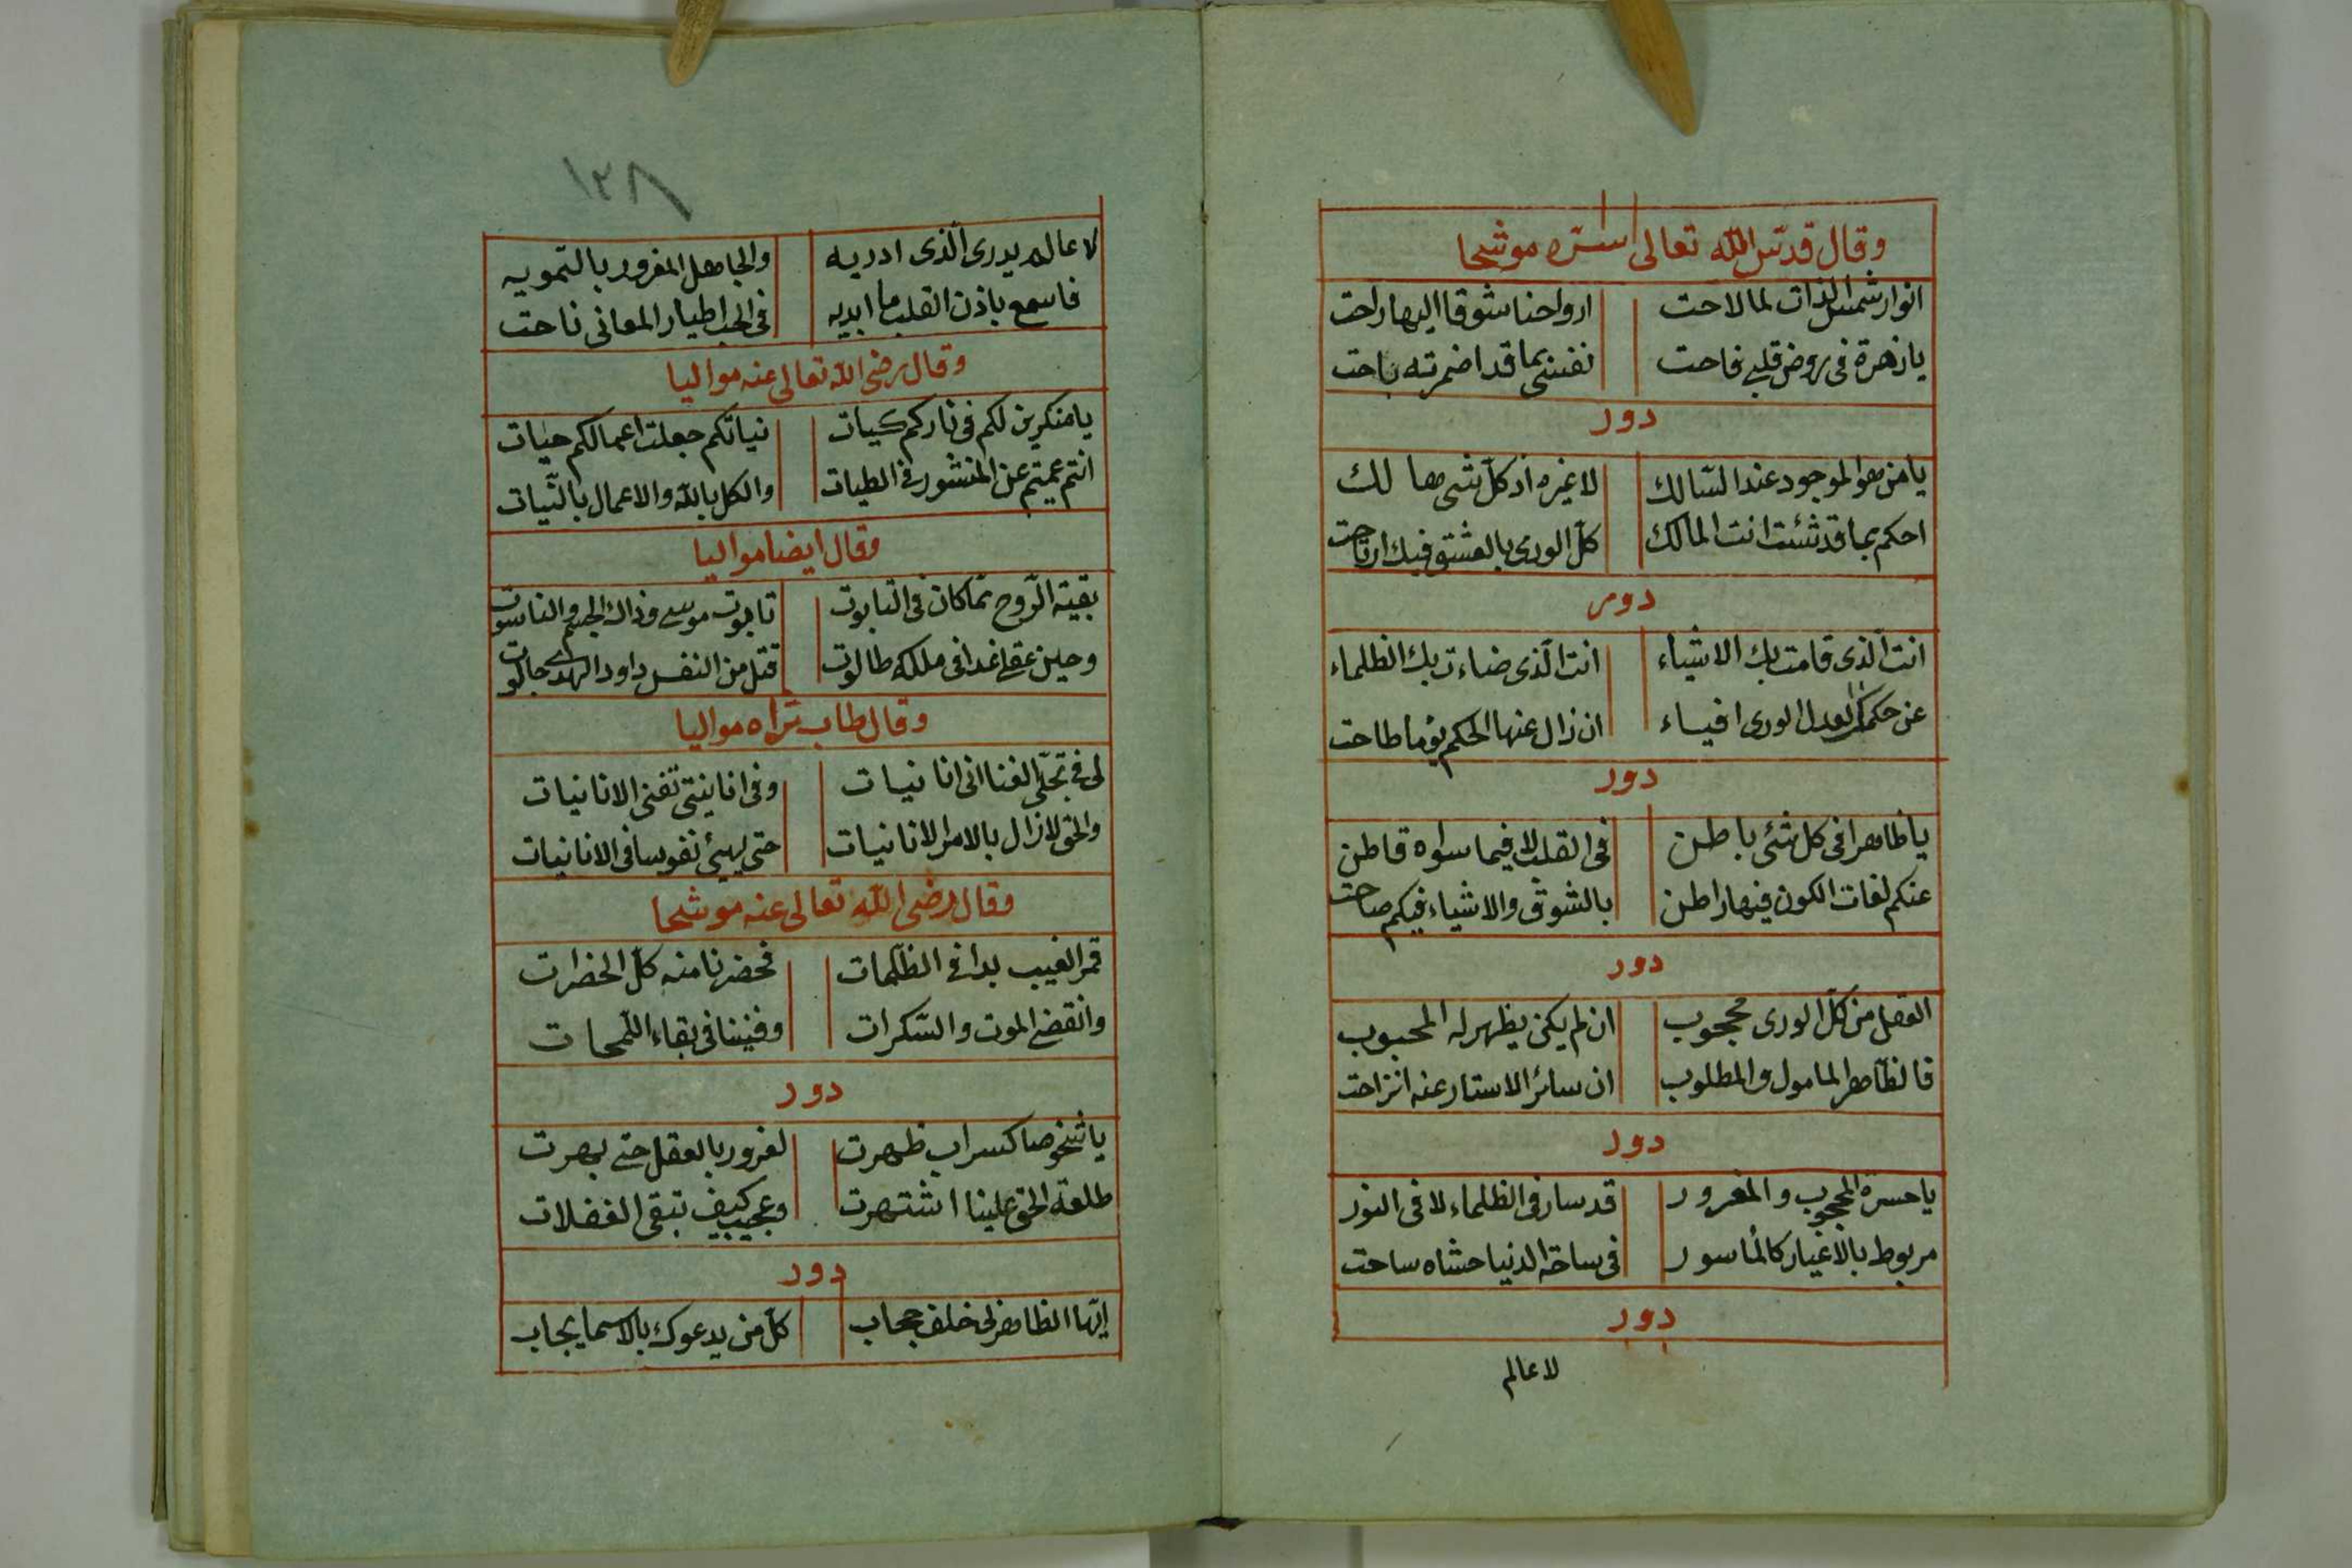 وقال قدّس الله تعالى سرّه موشحا
انوار شمس الذات لما لاحت ارواحنا شوقا اليها راحت
يا زهرة فى روض قلبے فاحت نفسى بما قد اضمرته باحت
دور
يا من هو الموجود عند السّالك لا غيره اذ كلّ شى هالك
احكم بما قد شئت انت المالك كلّ الورى بالعشق فيك ارتاحت
دور
انت الّذى قامت بك الاشياء انت الّذى ضاءت بك الظلماء
عن حكمك العدل الورى افياء ان زال عنها الحكم يوما طاحت
دور
يا ظاهرا فى كل شئى باطن فى القلب لا فيما سواه قاطن
عنكم لغات الكون فيها راطن بالشوق والاشياء فيكم صاحت
دور
العقل من كلّ الورى محجوب ان لم يكن يظهر له المحبوب
فالظّاهر المامول والمطلوب ان سائر الاستار عنه انزاحت
دور
يا حسرة المحجوب والمغرور قد سار فى الظلماء لا فى النور
مربوط بالاغيار كالمأسور فى ساحة الدنيا حشاه ساحت
دور
لا عالم
١٢٨
لا عالم يدرى الّذى ادريه والجاهل المغرور بالتمويه
فاسمع باذن القلب ما ابديه فى الحب اطيار المعانى ناحت
وقال رضى الله تعالى عنه مواليا
يا منكرين لكم فى ناركم كيات نياتكم جعلت اعمالكم حيات
انتم عميتم عن المنشور فى الطيات والكل بالله والاعمال بالنّيات
وقال ايضا مواليا
بقية الرّوح ممّا كان فى التابوت تابوت موسى وذاك الجسم والناسوت
وحين عقلے غدا فى ملكه طالوت قتل من النفس داود الهدے جالوت
وقال طاب ثراه مواليا
لى فى تجلّى الغنا انى انانيات وفى انانيتى تفنى الانانيات
والحق لا زال بالامر الانانيات حتى يهيئ نفوسا فى الانانيات
وقال رضى الله تعالى عنه موشحا
قمر الغيب بدا فى الظلمات فحضرنا منه كلّ الحضرات
وانقضے الموت والسّكرات وفنينا فى بقاء اللّمحات
دور
يا شخوصا كسراب ظهرت لغرور بالعقل حتے بهرت
طلعة الحق علينا اشتهرت وعجيب كيف تبقى الغفلات
دور
ايّها الظاهر لى خلف حجاب كلّ من يدعوك بالاسما يجاب